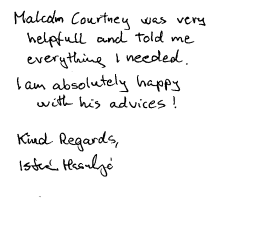 Malcolm Courtney was very
helpfull and told me
everything I needed.
I am absolutely happy
with his advices!
Kind Regards,